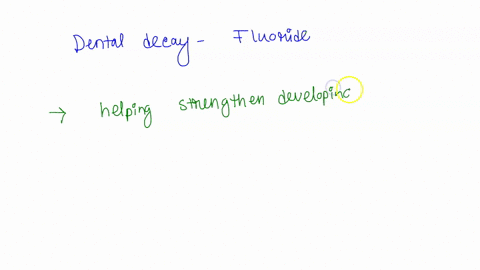 Dental decay - Fluoride
→ helping strengthen developinc